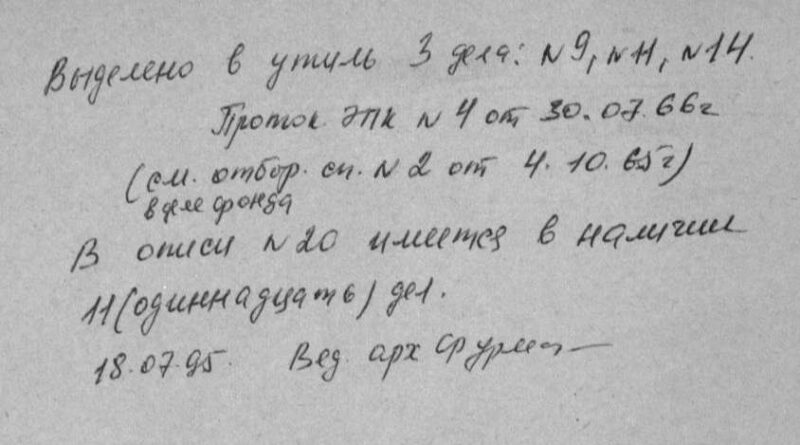 Выделено в утиль 3 дела: N9, N11, N14.
Проток. ЭПК N 4 от 30.07.66г
(см. отбор. сп. N 2 от 4.10.65г)
в деле фонда
В описи N20 имеется в наличии
11 (одиннадцать) дел.
18.07.95. Вед. арх